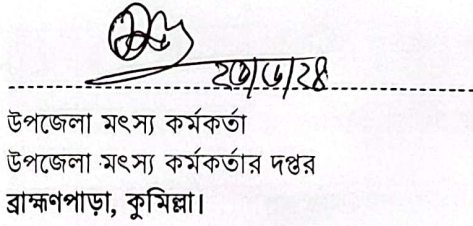 উপজেলা মৎস্য কর্মকর্তা
উপজেলা মৎস্য কর্মকর্তার দপ্তর
ব্রাহ্মণপাড়া, কুমিল্লা।